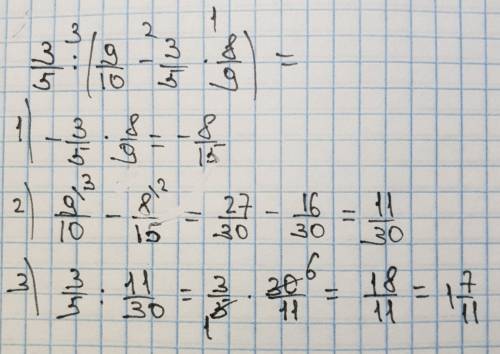 3/5 :³ (9/10 -² 3/5 ·¹ 8/9) =
1) - 3/5 · 8/9 = - 8/15
2) 9/10 /3 - 8/15 /2 = 27/30 - 16/30 = 11/30
3) 3/5 : 11/30 = 3/5 1 · 30/11 6 = 18/11 = 1 7/11